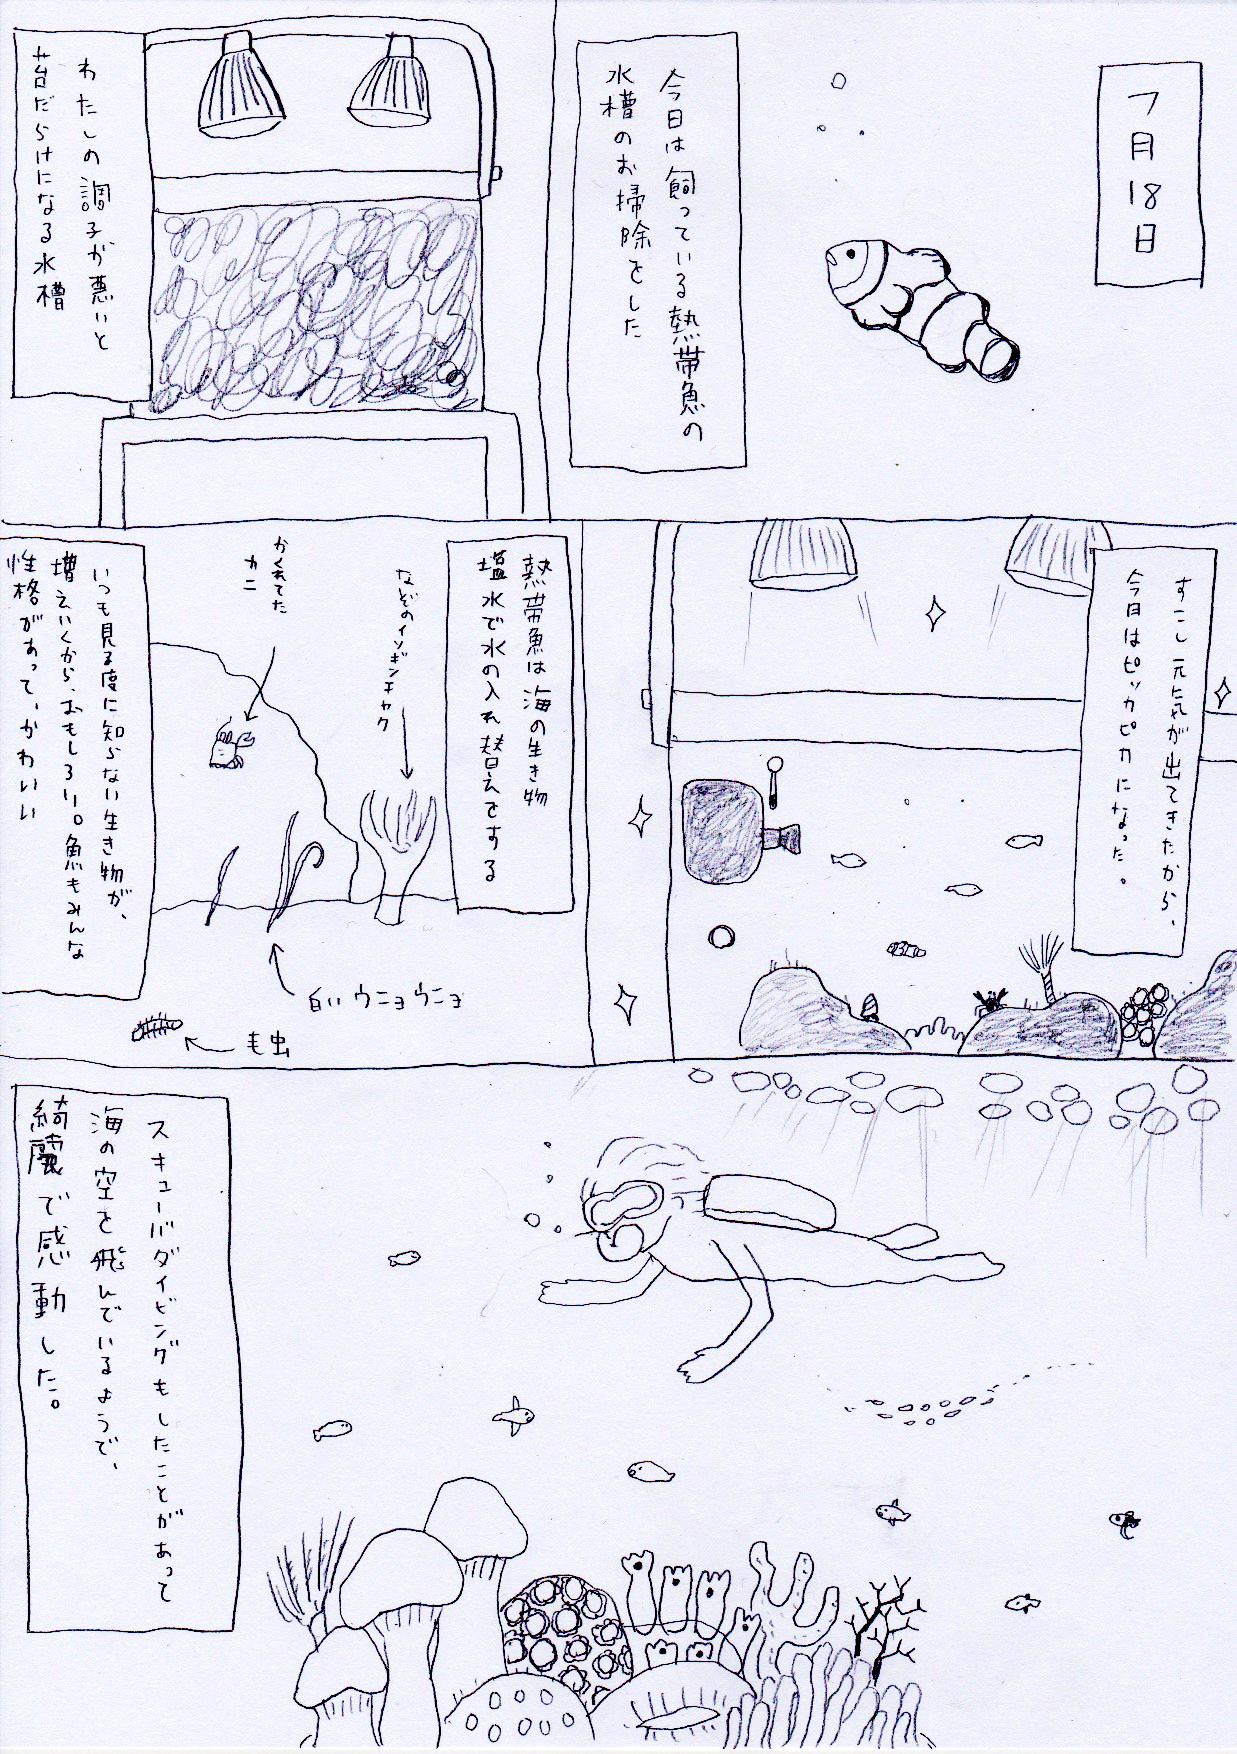 7月18日
今日は飼っている熱帯魚の
水槽のお掃除をした
わたしの調子が悪いと
苔だらけになる水槽
すこし元気が出てきたから、
今日はピッカピカになった。
熱帯魚は海の生き物
塩水で水の入れ替えをする
なぞのイソギンチャク
かくれてた
カニ
白いウニョウニョ
毛虫
いつも見る度に知らない生き物が、
増えいくから、おもしろい。魚もみんな
性格があって、かわいい
スキューバダイビングもしたことがあって
海の空を飛んでいるようで、
綺麗で感動した。